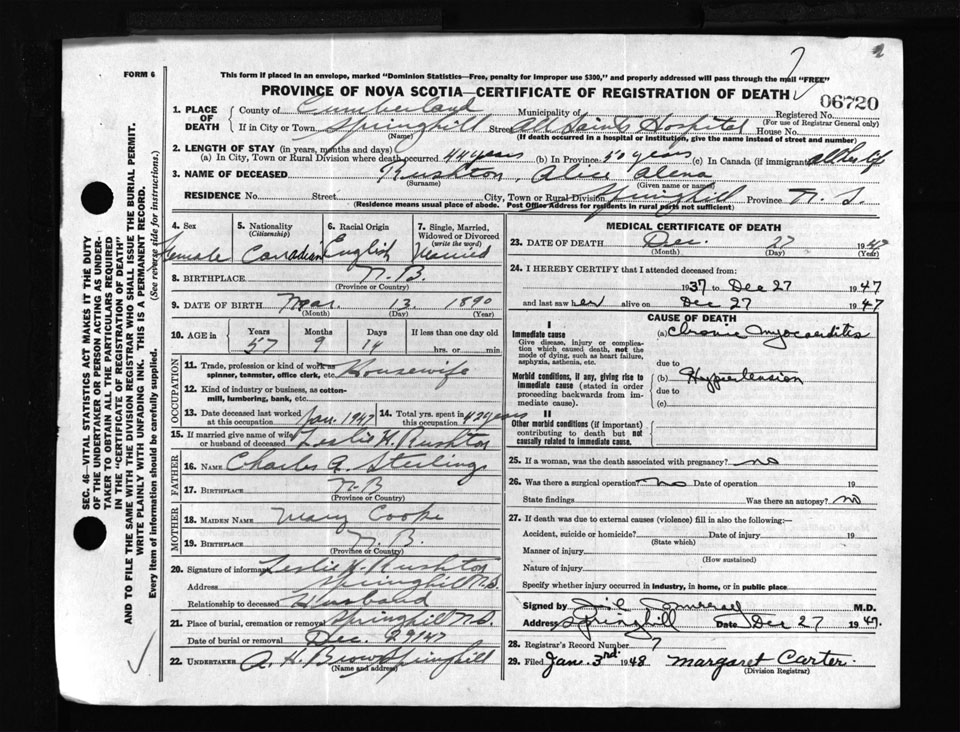 FORM 6
This form if placed in an envelope, marked "Dominion Statistics—Free, penalty for improper use $300," and properly addressed will pass through the mail "FREE"
PROVINCE OF NOVA SCOTIA—CERTIFICATE OF REGISTRATION OF DEATH
06720
1. PLACE OF DEATH
County of Cumberland Municipality of Registered No.
(For use of Registrar General only)
If in City or Town Springhill Street All Saints Hospital House No.
(Name) (If death occurred in a hospital or institution, give the name instead of street and number)
2. LENGTH OF STAY (in years, months and days)
(a) In City, Town or Rural Division where death occurred 44 years (b) In Province 50 years (c) In Canada (if immigrant) all her life
3. NAME OF DECEASED Rushton, Alice Alena
(Surname) (Given name or names)
RESIDENCE No. Street City, Town or Rural Division Springhill Province N. S.
(Residence means usual place of abode. Post Office Address for residents in rural parts not sufficient)
4. Sex Female
5. Nationality (Citizenship) Canadian
6. Racial Origin English
7. Single, Married, Widowed or Divorced (write the word) Married
8. BIRTHPLACE N. B.
(Province or Country)
9. DATE OF BIRTH Mar. 13 1890
(Month) (Day) (Year)
10. AGE in Years Months Days If less than one day old
57 9 14 hrs. or min.
OCCUPATION
11. Trade, profession or kind of work as spinner, teamster, office clerk, etc. Housewife
12. Kind of industry or business, as cotton-mill, lumbering, bank, etc.
13. Date deceased last worked at this occupation Jan. 1947
14. Total yrs. spent in this occupation 42 years
15. If married give name of wife or husband of deceased Leslie H. Rushton
FATHER
16. NAME Charles A. Sterling
17. BIRTHPLACE N-B
(Province or Country)
MOTHER
18. MAIDEN NAME Mary Cooke
19. BIRTHPLACE N. B.
(Province or Country)
20. Signature of informant Leslie H. Rushton
Address Springhill N.S.
Relationship to deceased Husband
21. Place of burial, cremation or removal Springhill N.S.
Date of burial or removal Dec. 29/47
22. UNDERTAKER A. H. Brown Springhill
(Name and address)
MEDICAL CERTIFICATE OF DEATH
23. DATE OF DEATH Dec. 27 1947
(Month) (Day) (Year)
24. I HEREBY CERTIFY that I attended deceased from:
1937 to Dec 27 1947
and last saw her alive on Dec 27 1947
CAUSE OF DEATH
I
Immediate cause (a) Chronic Myocarditis
Give disease, injury or complication which caused death, not the mode of dying, such as heart failure, asphyxia, asthenia, etc.
due to
Morbid conditions, if any, giving rise to immediate cause (stated in order proceeding backwards from immediate cause).
(b) Hypertension
due to
(c)
II
Other morbid conditions (if important) contributing to death but not causally related to immediate cause.
25. If a woman, was the death associated with pregnancy? no
26. Was there a surgical operation? No Date of operation 19
State findings Was there an autopsy? no
27. If death was due to external causes (violence) fill in also the following:—
Accident, suicide or homicide? Date of injury 19
(State which)
Manner of injury
(How sustained)
Nature of injury
Specify whether injury occurred in industry, in home, or in public place
Signed by M.D.
Address Springhill Date Dec 27 1947.
28. Registrar's Record Number 7
29. Filed Jan. 3rd 1948 Margaret Carter.
(Division Registrar)
SEC. 46—VITAL STATISTICS ACT MAKES IT THE DUTY
OF THE UNDERTAKER OR PERSON ACTING AS UNDERTAKER TO OBTAIN ALL THE PARTICULARS REQUIRED
IN THE "CERTIFICATE OF REGISTRATION OF DEATH"
AND TO FILE THE SAME WITH THE DIVISION REGISTRAR WHO SHALL ISSUE THE BURIAL PERMIT.
WRITE PLAINLY WITH UNFADING INK. THIS IS A PERMANENT RECORD.
Every item of information should be carefully supplied. (See reverse side for instructions.)